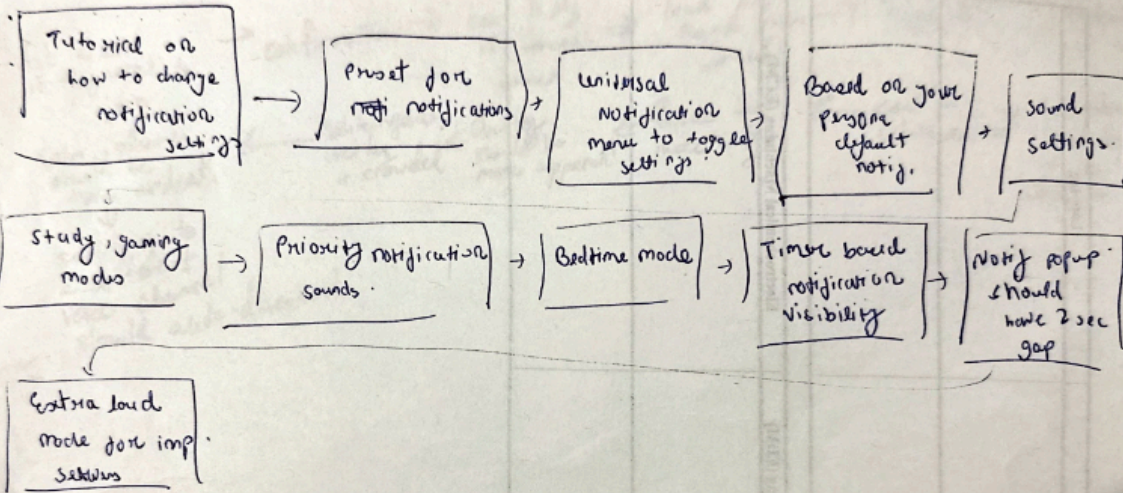 Tutorial on
how to change
notification
settings
Preset for
notifications
Universal
notification
menu to toggle
settings.
Based on your
persona
default
notif.
Sound
settings.
Study, gaming
modes
Priority notification
sounds.
Bedtime mode
Timer based
notification
visibility
Notif popup
should
have 2 sec
gap
Extra loud
mode for imp.